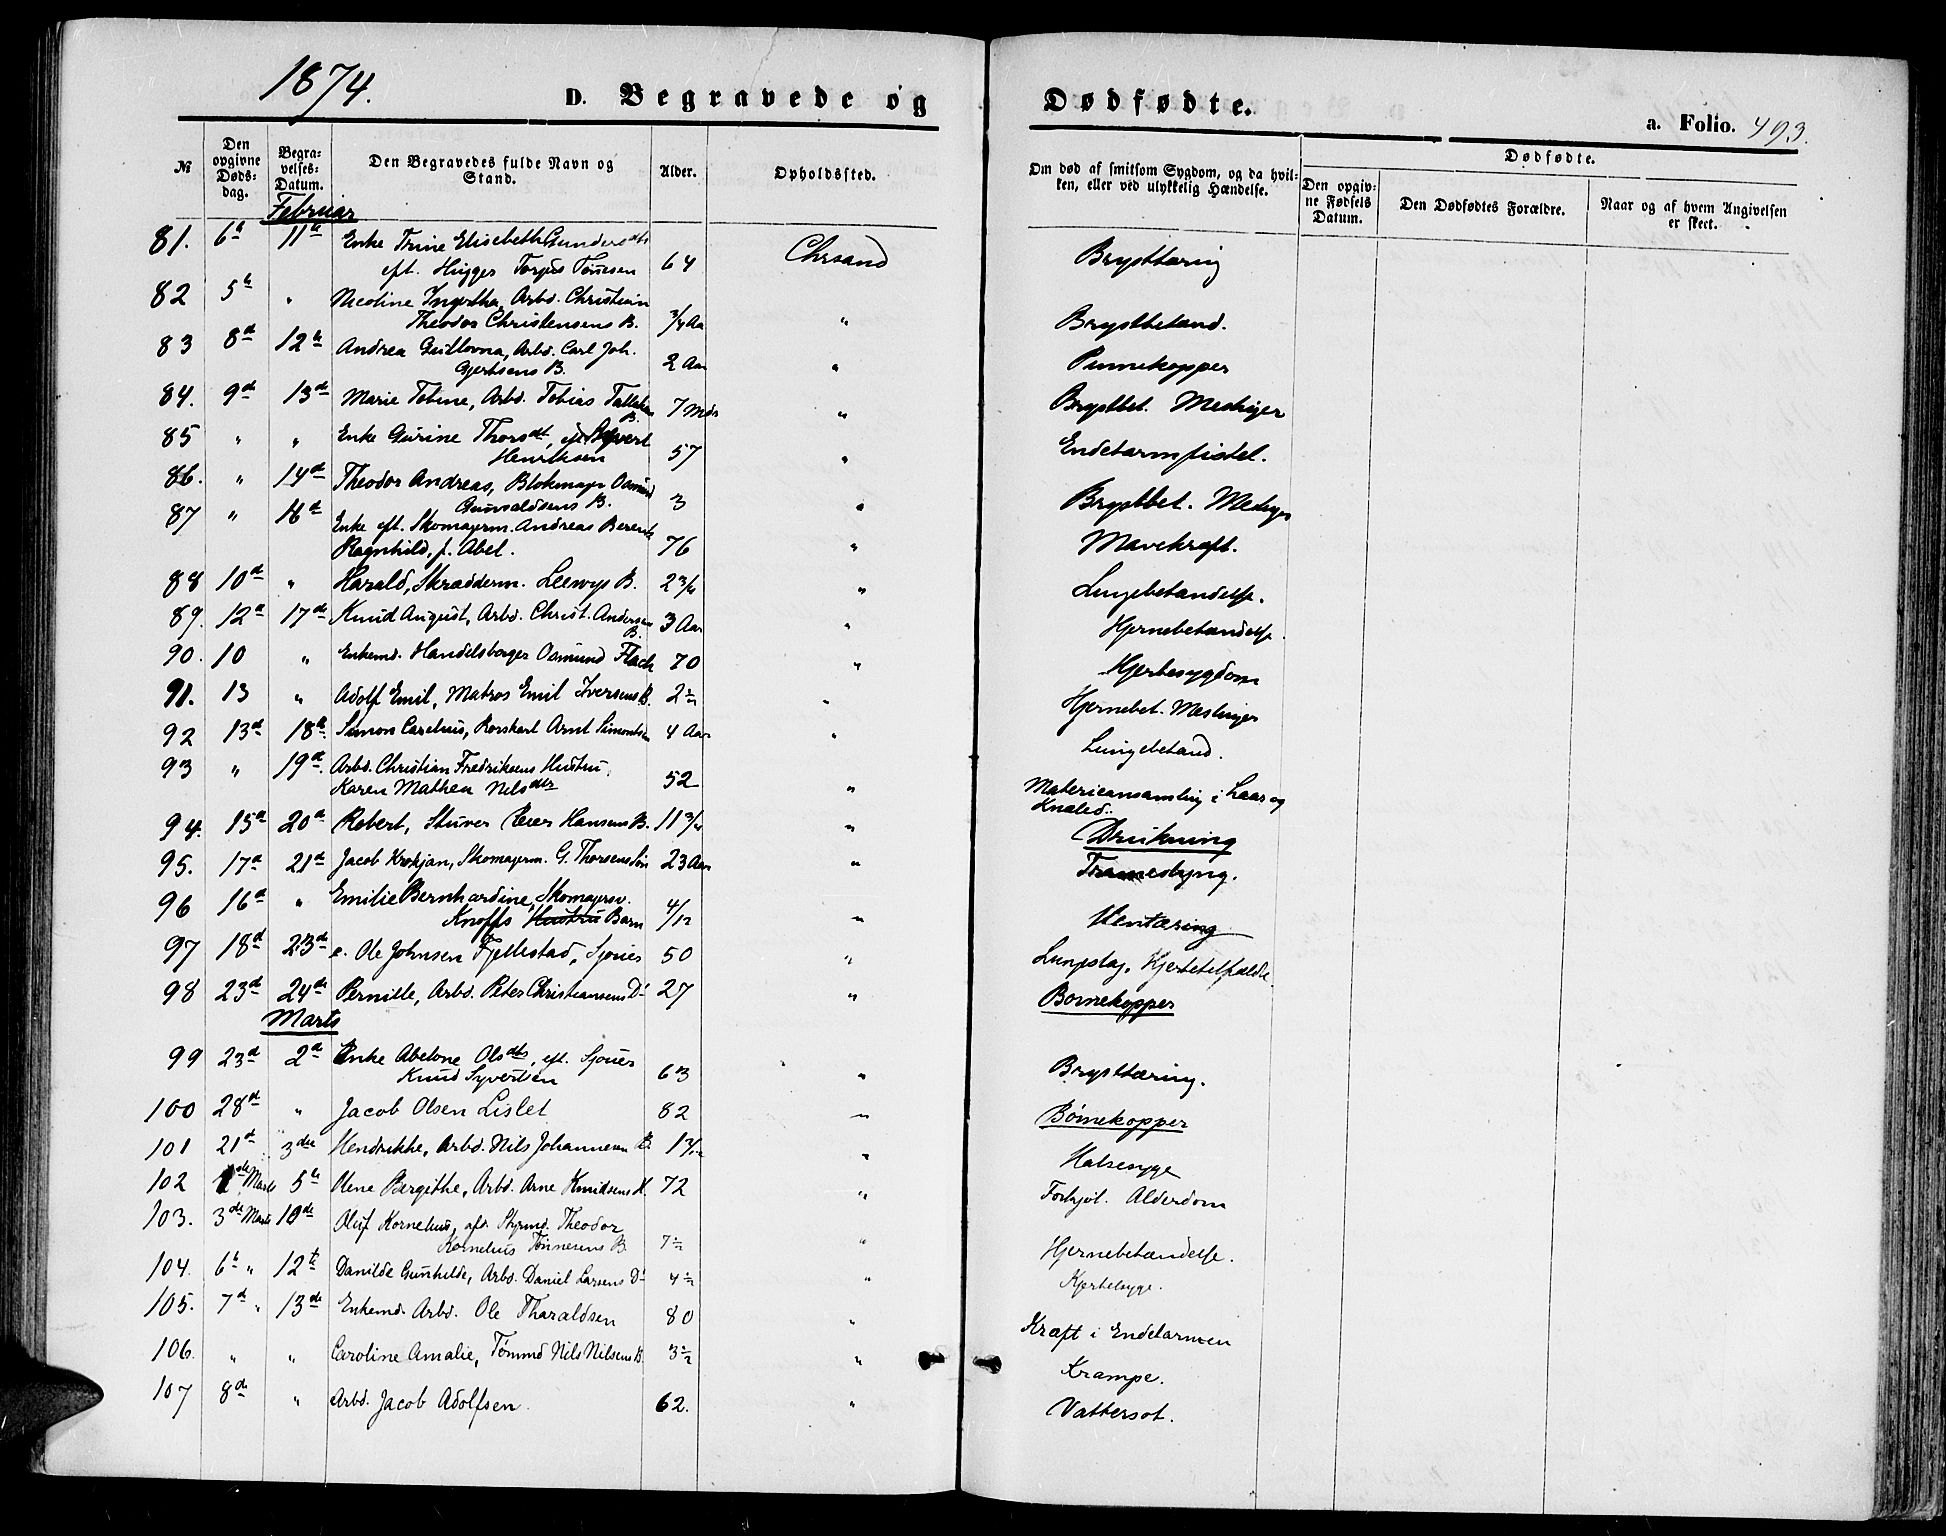 1874.
D. Begravede og Dødfødte.
a. Folio. 493.
№
Den opgivne Døds-dag.
Begra-velses-Datum.
Den Begravedes fulde Navn og Stand.
Alder.
Opholdssted.
Om død af smitsom Sygdom, og da hvil-ken, eller ved ulykkelig Hændelse.
Dødfødte.
Den opgiv-ne Fødsels Datum.
Den Dødfødtes Forældre.
Naar og af hvem Angivelsen er skeet.
Februar
81. 6te 11te Enke Trine Elisebeth Gundersdtr
eft. Hugger Torjus Tønnesen 64 Chrsand Brysttæring
82 5te " Nicoline Ingertha, Arbd. Christian
Theodor Christensens B. 3/4 Aar " Brystbetænd.
83 8d 12te Andrea Gullovna, Arbd. Carl Joh.
Gjertsens B. 2 Aar " Pinnekopper
84. 9d 13d Marie Tobine, Arbd. Tobias
B. 7 Mdr " Brystbet. Meslinger
85 " " Enke Gurine Thorsdt, eft. Syvert
Henriksen 57 " Endetarmfistel.
86. " 14d Theodor Andreas, Blokmager Osmund
Gunvaldsens B. 3 " Brystbet. Meslinger
87 " 16d Enke eft. Skomagerm. Andreas Berents
Ragnhild, f. Abel. 76 " Mavekræft.
88 10d " Harald, Skrædderm. B. 2 3/4 " Lungebetændelse.
89. 12d 17de Knud August, Arbd. Christ. Andersen
B. 3 Aar " Hjernebetændelse.
90. 10 " Enkemd. Handelsborger Osmund Flack 70 " Hjertesygdom
91. 13 " Adolf Emil, Matros Emil Iversens B. 2 1/2 " Hjernebet. Meslinger
92 13d 18de Simon Carelius, Rorskarl Arnt Simonsen 4 Aar " Lungebetænd.
93 " 19d. Arbd. Christian Fredriksens Hustru,
Karen Mathea Nilsdtr 52 " Materieansamling i Laar og
Knæled.
94. 15d 20d Robert, Stuver Peder Hansens B. 11 3/4 " Drukning
95. 17d 21d Jacob Krokjan, Skomagerm. G. Thorsens Søn 23 Aar "
96 16d " Emilie Bernhardine, Skomagersv.
Knoffs Hustru Barn 4/12 "
97 18d 23d e. Ole Johnsen Fjellestad, Sjouer 50 " Lungeslag, Hjertetilfælde
98 23d 24de Pernille, Arbd. Peter Christiansens D. 27 " Børnekopper
Marts
99 23d 2d Enke Abelone Olsdtr, eft. Sjouer
Knud Syvertsen 63 " Brysttæring.
100 28d " Jacob Olsen Lislet 82 " Børnekopper
101 21d 3die Hendrikke, Arbd. Nils Johannesen B. " Halssyge
102 1ste Marts 5te Olene Bergithe, Arbd. Arne Knudsens H. 72 " Forkjøl. Alderdom
103. 3die Marts 10de Oluf Kornelius, afd. Styrmd. Theodor
Kornelius Tønnesens B. 7 1/2 " Hjernebetændelse.
104. 6te " 12te Danilde Gunhilde, Arbd. Daniel Larsens D. 4 1/2 " Hjertesyge.
105. 7d " 13de Enkemd. Arbd. Ole Tharaldsen 80 " Kræft i Endetarmen
106. " " Caroline Amalie, Tømmd Nils Nilsens B. 3 1/2 " Krampe.
107 8de " Arbd. Jacob Adolfsen. 62. " Vattersot.